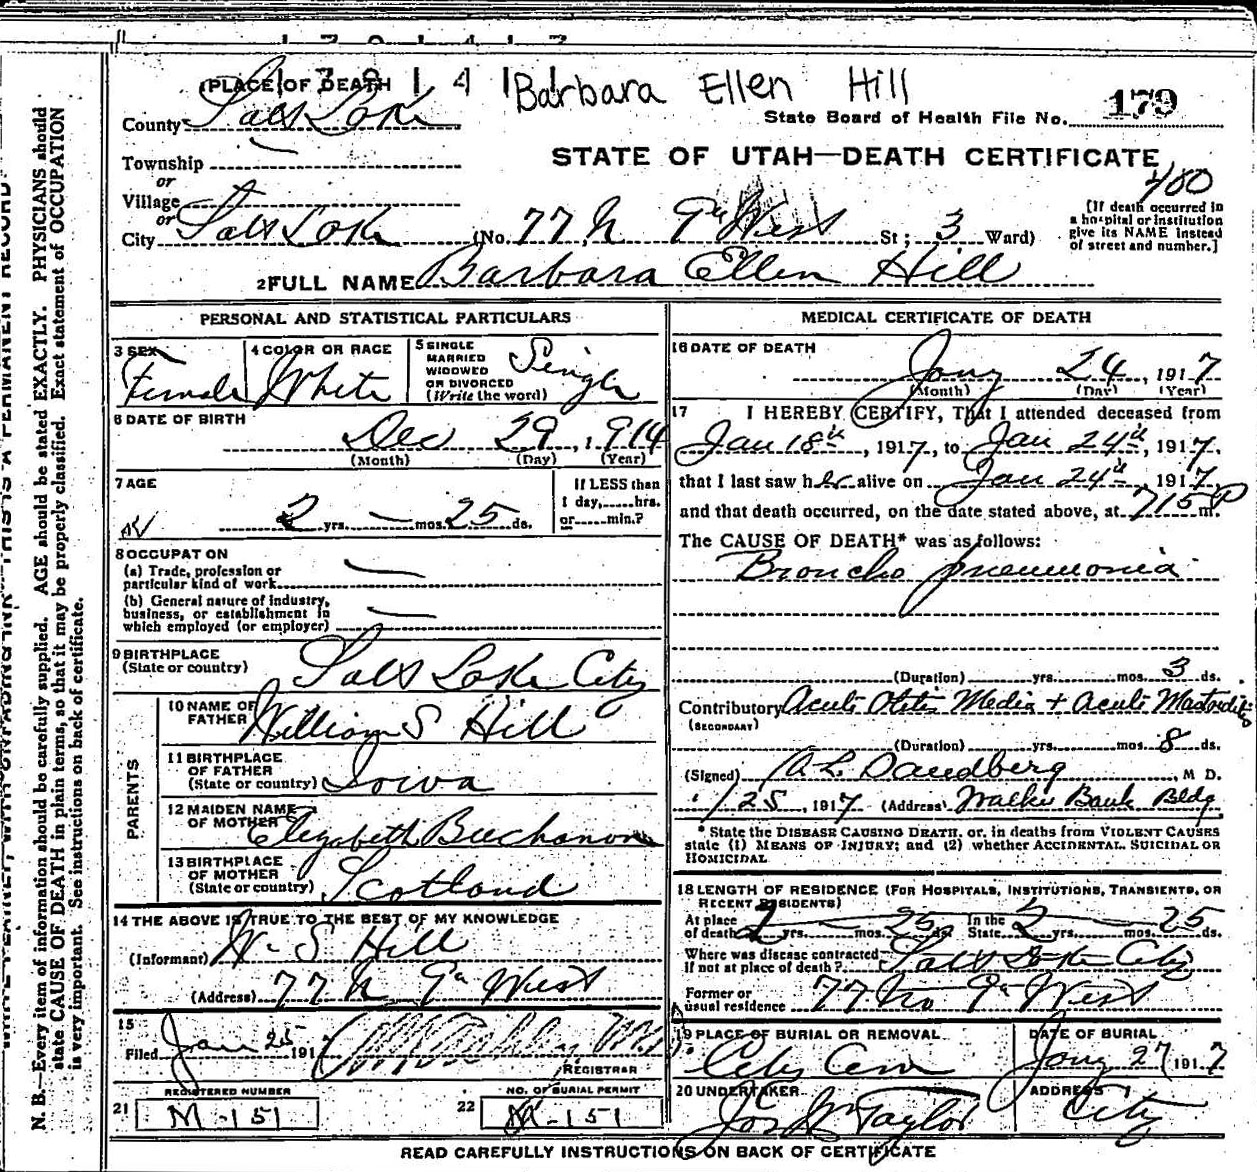 Barbara Ellen Hill
PLACE OF DEATH
State Board of Health File No. 179
County Salt Lake
STATE OF UTAH—DEATH CERTIFICATE
Township
or
Village
or
City Salt Lake (No. 77 N 9th West St; 3 Ward)
400
[If death occurred in
a hospital or institution
give its NAME instead
of street and number.]
2 FULL NAME Barbara Ellen Hill
PERSONAL AND STATISTICAL PARTICULARS
3 SEX Female
4 COLOR OR RACE White
5 SINGLE
MARRIED
WIDOWED
OR DIVORCED
(Write the word) Single
6 DATE OF BIRTH
Dec 29, 1914
(Month) (Day) (Year)
7 AGE
2 yrs. — mos. 25 ds.
If LESS than
1 day,......hrs.
or......min.?
8 OCCUPATION
(a) Trade, profession or
particular kind of work —
(b) General nature of industry,
business, or establishment in
which employed (or employer) —
9 BIRTHPLACE
(State or country) Salt Lake City
PARENTS
10 NAME OF
FATHER William S Hill
11 BIRTHPLACE
OF FATHER
(State or country) Iowa
12 MAIDEN NAME
OF MOTHER Elizabeth Buchanan
13 BIRTHPLACE
OF MOTHER
(State or country) Scotland
14 THE ABOVE IS TRUE TO THE BEST OF MY KNOWLEDGE
(Informant) W. S Hill
(Address) 77 N 9th West
15
Filed Jan 25 1917
REGISTRAR
REGISTERED NUMBER
21 M-151
NO. OF BURIAL PERMIT
22 M-151
MEDICAL CERTIFICATE OF DEATH
16 DATE OF DEATH
Jany 24, 1917
(Month) (Day) (Year)
17 I HEREBY CERTIFY, That I attended deceased from
Jan 18th, 1917, to Jan 24th, 1917,
that I last saw her alive on Jan 24th, 1917
and that death occurred, on the date stated above, at 715 P m.
The CAUSE OF DEATH* was as follows:
Broncho pneumonia
(Duration) yrs. mos. 3 ds.
Contributory Acute Otitis Media + Acute Mastoiditis
(SECONDARY)
(Duration) yrs. mos. 8 ds.
(Signed) M D.
1/25, 1917 (Address) Walker Bank Bldg
* State the DISEASE CAUSING DEATH, or, in deaths from VIOLENT CAUSES
state (1) MEANS OF INJURY; and (2) whether ACCIDENTAL, SUICIDAL OR
HOMICIDAL
18 LENGTH OF RESIDENCE (FOR HOSPITALS, INSTITUTIONS, TRANSIENTS, OR
RECENT RESIDENTS)
At place
of death 2 yrs. — mos. 25 ds. In the
State 2 yrs. — mos. 25 ds.
Where was disease contracted
If not at place of death? Salt Lake City
Former or
usual residence 77 No 9th West
19 PLACE OF BURIAL OR REMOVAL
City Cem
DATE OF BURIAL
Jany 27 1917
20 UNDERTAKER
Jos Wm Taylor
ADDRESS
City
READ CAREFULLY INSTRUCTIONS ON BACK OF CERTIFICATE
N. B.—Every item of information should be carefully supplied. AGE should be stated EXACTLY. PHYSICIANS should
state CAUSE OF DEATH in plain terms, so that it may be properly classified. Exact statement of OCCUPATION
is very important. See instructions on back of certificate.